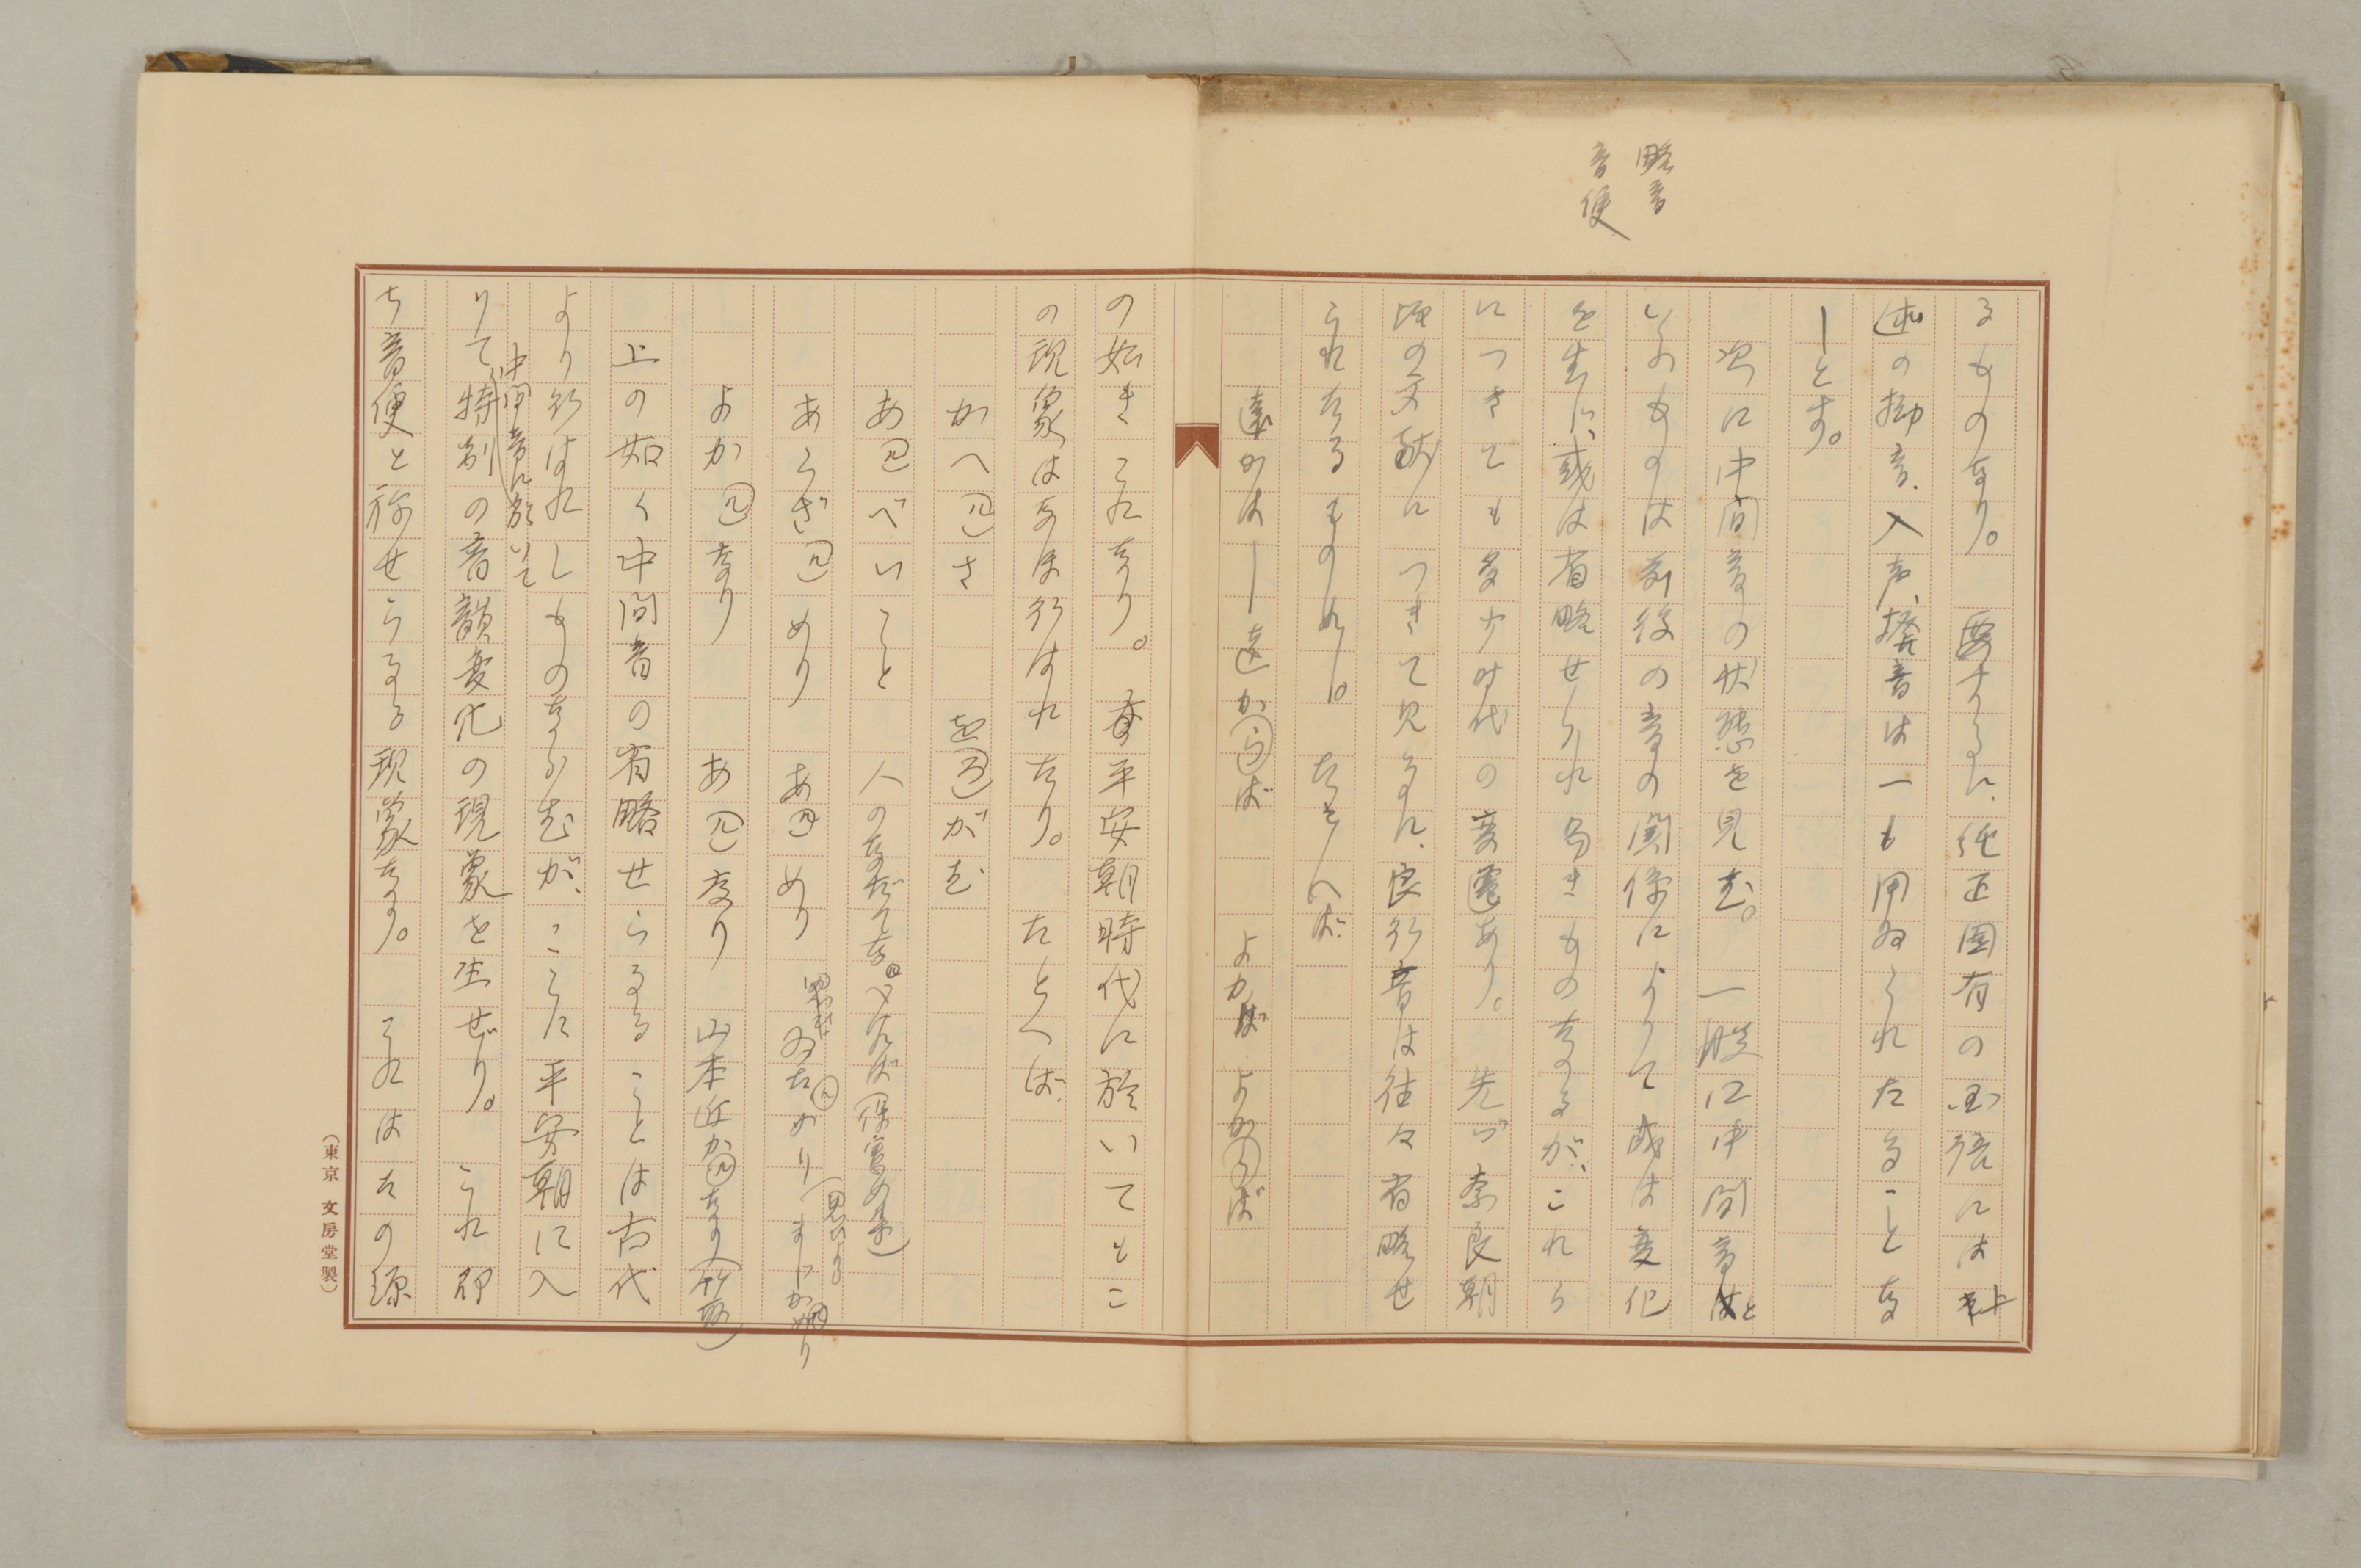 略音
音便
るものなり。要するに、純正固有の国語には上
述の拗音、入声、撥音は一も用ゐられたることな
しとす。
次に中間音の状態を見む。一般に中間音と
いふものは前後の音の関係によりて或は変化
を生じ、或は省略せられ易きものなるが、これら
につきても多少時代の変遷あり。先づ奈良朝
頃の文献につきて見るに、良行音は往々省略せ
られたるものゝ如し。たとへば、
遠かば―遠からば よかば よからば
の如きこれなり。平安朝時代に於いてもこ
の現象はなほ行はれたり。たとへば、
かへ(ん)さ を(る)がむ
あ(ん)べいこと
あらざ(ん)めり あ(ん)めり
よか(ん)なり あ(ん)なり 山本近か(ん)なり(竹取)
上の如く中間音の省略せらるることは古代
より行はれしものならむが、ことに平安朝に入
中間音に於いて
りて、特別の音韻変化の現象を生ぜり。これ即
ち音便と称せらるる現象なり。これはたの源
(東京 文房堂製)